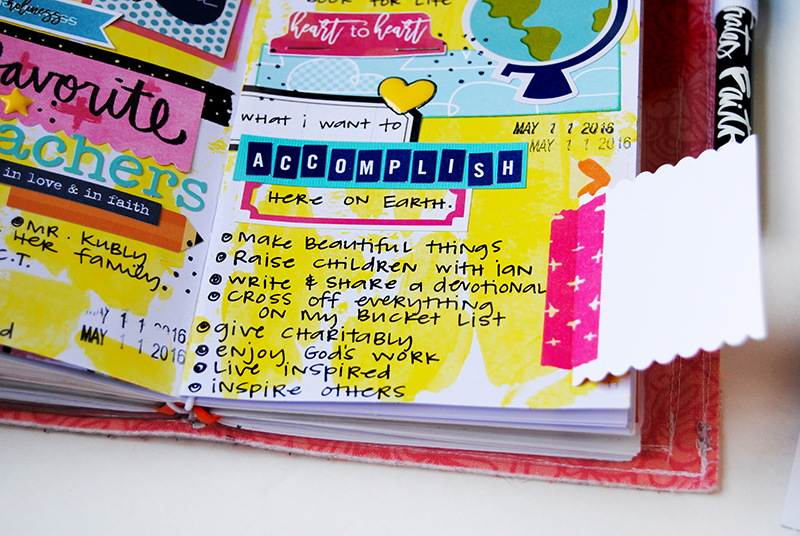 holiness
favorite
teachers
in love & in faith
MR. KUBLY
HER family.
C.T.
MAY 1 1 2016
MAY 1 1 2016
BOOK FOR LIFE
heart to heart
what i want to
MAY 1 1 2016
MAY 1 1 2016
ACCOMPLISH
HERE ON EARTH.
make beautiful things
Raise children with ian
write & share a devotional
cross off everything
on my bucket list
give charitably
enjoy God's work
Live inspired
inspire others
Faith